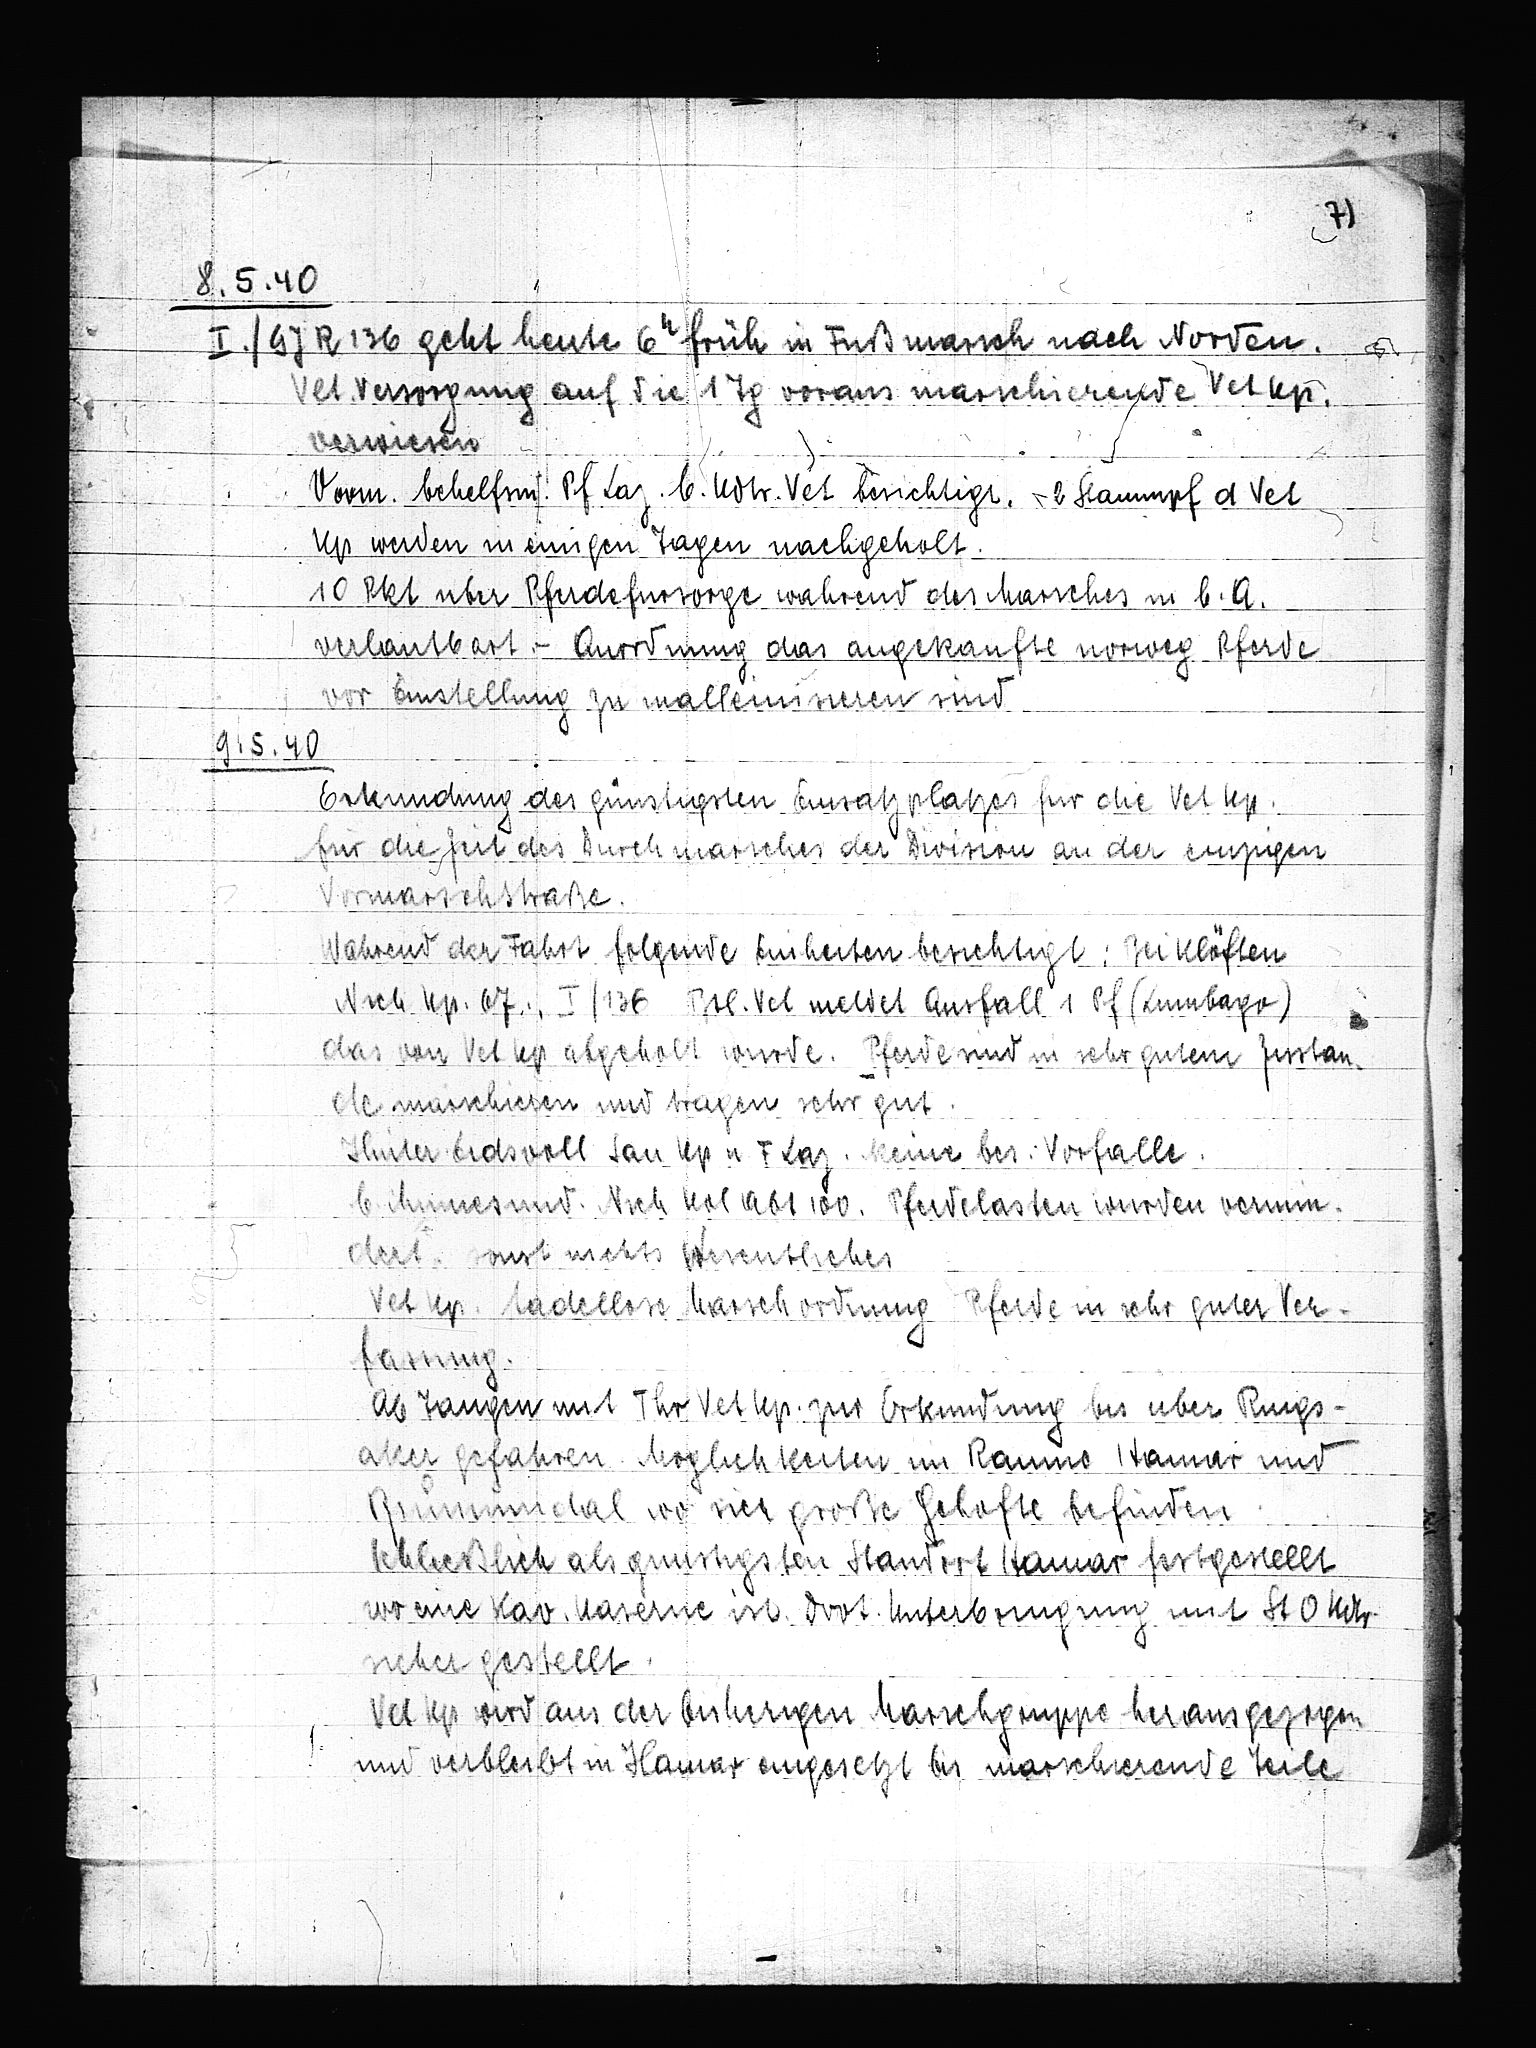 7)
8.5.40
I./GJR 136 geht heute 6h früh in Fußmarsch nach Norden.
Vet. Versorgung auf die 1 Tg voraus marschierende Vet Kp.
verwiesen
Vorm. behelfsm. Pf Laz. b. Kdtr. Vet besichtigt. - 2 Stammpf d Vet
Kp werden in einigen Tagen nachgeholt.
10 Pkt uber Pferdefursorge wahrend des Marsches in b. A.
verlautbart. - Anordnung das angekaufte norweg Pferde
vor Einstellung zu malleinisieren sind
9.5.40
Erkundung des günstigsten Einsatzplatzes fur die Vet Kp.
für die Zeit des Durchmarsches der Division an der einzigen
Vormarschstraße.
Wahrend der Fahrt folgende Einheiten besichtigt: Bei Klöften
Nich Kp. 67., I/136 Btl. Vet meldet Ausfall 1 Pf (Lumbago)
das von Vet Kp abgeholt wurde. Pferde sind in sehr gutem Zustan-
de marschieren und tragen sehr gut.
Hinter Eidsvoll San Kp u F Laz. keine bes. Vorfalle.
b. Minnesund. Nich Kol Abt 100. Pferdelasten wurden vermin-
dert. sonst nichts Wesentliches
Vet Kp. tadellose Marschordnung Pferde in sehr guter Ver-
fassung.
Ab Tangen mit Thr Vet Kp. zur Erkundung bis uber Rings-
aker gefahren. Moglichkeiten im Raume Hamar und
Brummundal wo sich große Gehofte befinden.
schließlich als gunstigsten Standort Hamar festgestellt
wo eine Kav. Kaserne ist. Dort. Unterbringung mit St O Kdtr.
sicher gestellt.
Vet Kp wird aus der bisherigen Marschgruppe herausgezogen
und verbleibt in Hamar eingesetzt bis marschierende Teile